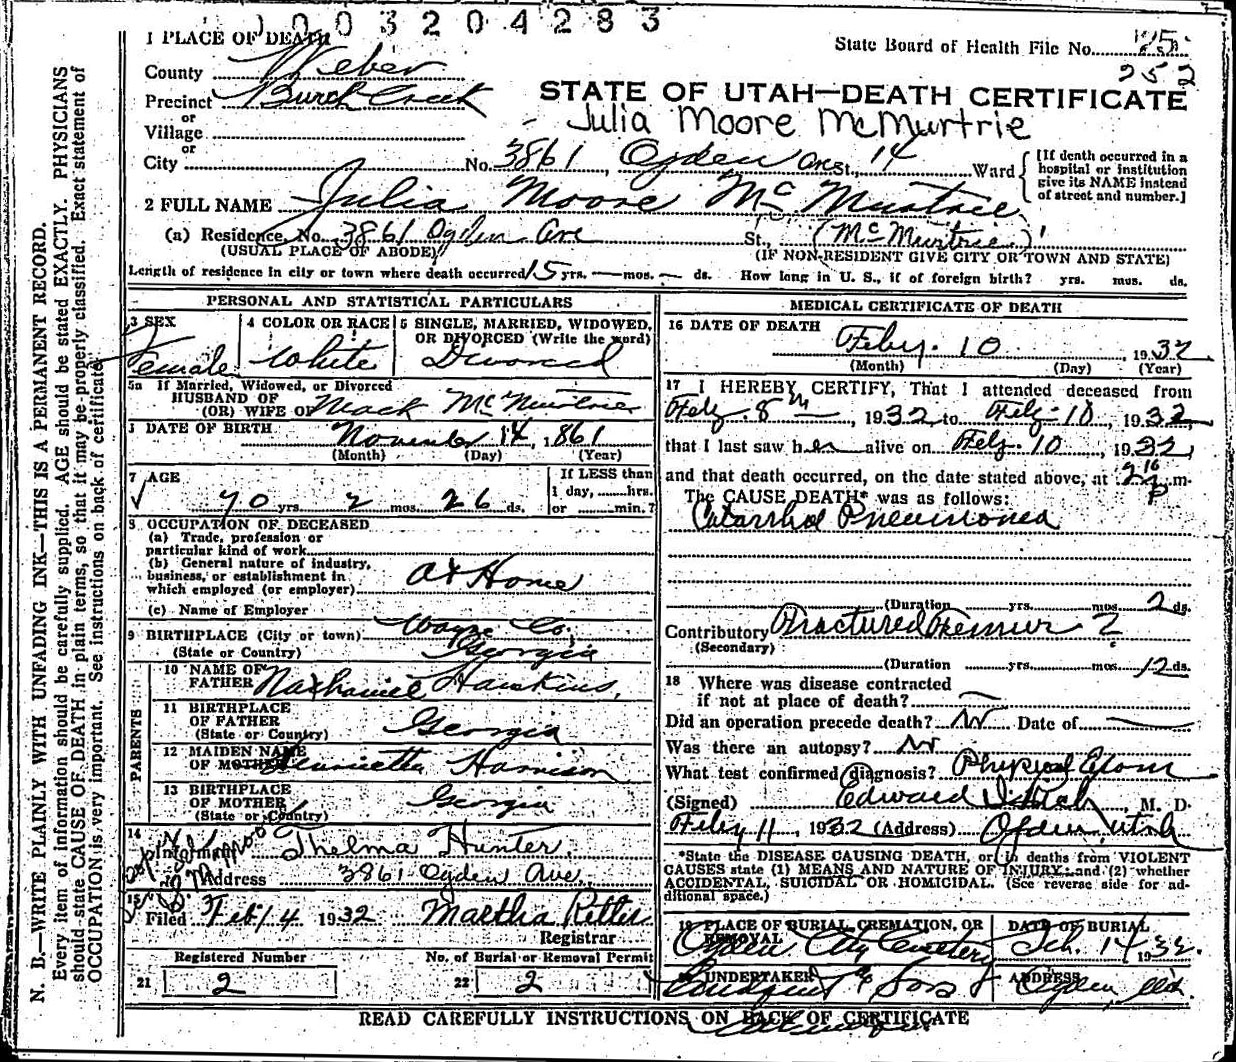 0003204283
1 PLACE OF DEATH
State Board of Health File No. 25
252
County Weber
Precinct Burch Creek
STATE OF UTAH—DEATH CERTIFICATE
or
Village
Julia Moore McMurtrie
or
City No. 3861 Ogden Ave St., 14 Ward
[If death occurred in a hospital or institution give its NAME instead of street and number.]
2 FULL NAME Julia Moore McMurtrie
(a) Residence No. 3861 Ogden Ave St., (McMurtrie)
(USUAL PLACE OF ABODE) (IF NON-RESIDENT GIVE CITY OR TOWN AND STATE)
Length of residence in city or town where death occurred 15 yrs. — mos. — ds. How long in U. S., if of foreign birth? yrs. mos. ds.
PERSONAL AND STATISTICAL PARTICULARS
3 SEX
Female
4 COLOR OR RACE
White
5 SINGLE, MARRIED, WIDOWED, OR DIVORCED (Write the word)
Divorced
5a If Married, Widowed, or Divorced
HUSBAND OF
(OR) WIFE OF Mack McMurtrie
DATE OF BIRTH November 14, 1861
(Month) (Day) (Year)
7 AGE
70 yrs. 2 mos. 26 ds.
If LESS than
1 day, hrs.
or min.?
8 OCCUPATION OF DECEASED
(a) Trade, profession or
particular kind of work
(b) General nature of industry,
business, or establishment in
which employed (or employer) At Home
(c) Name of Employer
9 BIRTHPLACE (City or town) Wayne Co,
(State or Country) Georgia
PARENTS
10 NAME OF
FATHER Nathaniel Hawkins,
11 BIRTHPLACE
OF FATHER
(State or Country) Georgia
12 MAIDEN NAME
OF MOTHER Henrietta Harrison
13 BIRTHPLACE
OF MOTHER
(State or Country) Georgia
14
Informant Thelma Hunter.
Address 3861 Ogden Ave.
15
Filed Feb 14 1932 Martha Ritter
Registrar
Registered Number No. of Burial or Removal Permit
21 2 22 2
MEDICAL CERTIFICATE OF DEATH
16 DATE OF DEATH
Feby. 10, 1932
(Month) (Day) (Year)
17 I HEREBY CERTIFY, That I attended deceased from
Feby. 8, 1932 to Feby-10, 1932
that I last saw her alive on Feby. 10, 1932,
and that death occurred, on the date stated above, at 2 16 p m.
The CAUSE DEATH* was as follows:
Catarrhal Pneumonea
(Duration yrs. mos. 2 ds.
Contributory Fractured Femur ?
(Secondary)
(Duration yrs. mos. 12 ds.
18 Where was disease contracted
if not at place of death? —
Did an operation precede death? No Date of —
Was there an autopsy? No
What test confirmed diagnosis? Physical Exam
(Signed) Edward I. Rich, M. D.
Feby 11, 1932 (Address) Ogden, Utah
*State the DISEASE CAUSING DEATH, or in deaths from VIOLENT
CAUSES state (1) MEANS AND NATURE OF INJURY and (2) whether
ACCIDENTAL, SUICIDAL OR HOMICIDAL. (See reverse side for additional space.)
19 PLACE OF BURIAL, CREMATION, OR
REMOVAL
Ogden City Cemetery
DATE OF BURIAL
Feb. 14 1932.
20 UNDERTAKER
Lindquist & Sons
ADDRESS
Ogden, Utd.
READ CAREFULLY INSTRUCTIONS ON BACK OF CERTIFICATE
N. B.—WRITE PLAINLY WITH UNFADING INK—THIS IS A PERMANENT RECORD.
Every item of information should be carefully supplied. AGE should be stated EXACTLY. PHYSICIANS
should state CAUSE OF DEATH in plain terms, so that it may be properly classified. Exact statement of
OCCUPATION is very important. See instructions on back of certificate.